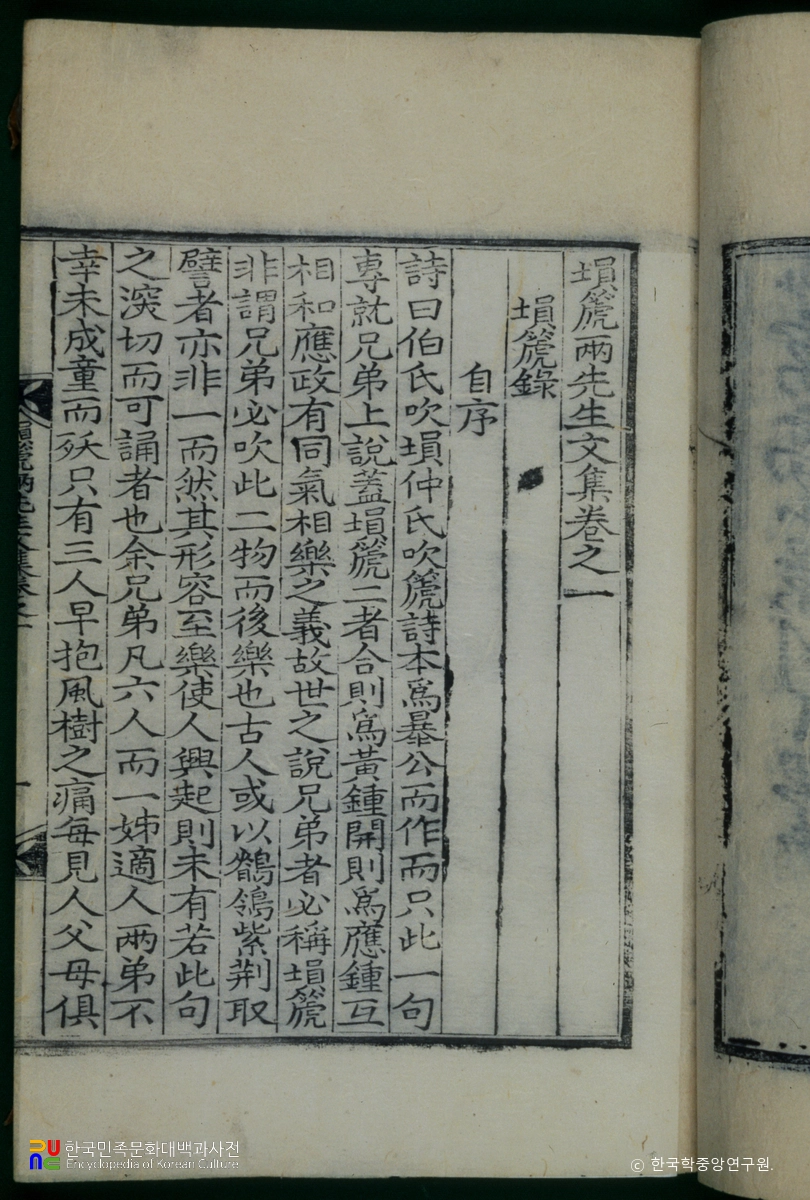 塤篪兩先生文集卷之一
塤篪錄
自序
詩曰伯氏吹塤仲氏吹篪詩本爲暴公而作而只此一句
專就兄弟上說蓋塤篪二者合則爲黃鍾開則爲應鍾互
相和應政有同氣相樂之義故世之說兄弟者必稱塤篪
非謂兄弟必吹此二物而後樂也古人或以鶺鴒紫荆取
譬者亦非一而然其形容至樂使人興起則未有若此句
之深切而可誦者也余兄弟凡六人而一姊適人兩弟不
幸未成童而殀只有三人早抱風樹之痛每見人父母俱
塤篪兩先生文集卷之一
한국민족문화대백과사전
Encyclopedia of Korean Culture
ⓒ 한국학중앙연구원.